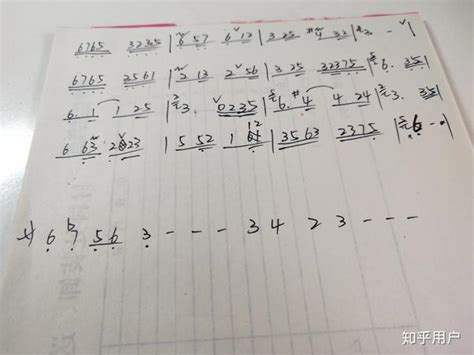 6765 3235 | 6 57 6 12 | 3 25 #4 32 | 3 -
6765 3561 | 2 13 2 56 | 3 25 32375 | 6. 35
6. 1 1 25 | 3. 0235 | 6. #4 4 24 | 3. 35
6 63 2023 | 5 52 1 | 3563 2375 | 6 -
6 b7 56 3 - - - 3 4 2 3 - - -
知乎用户